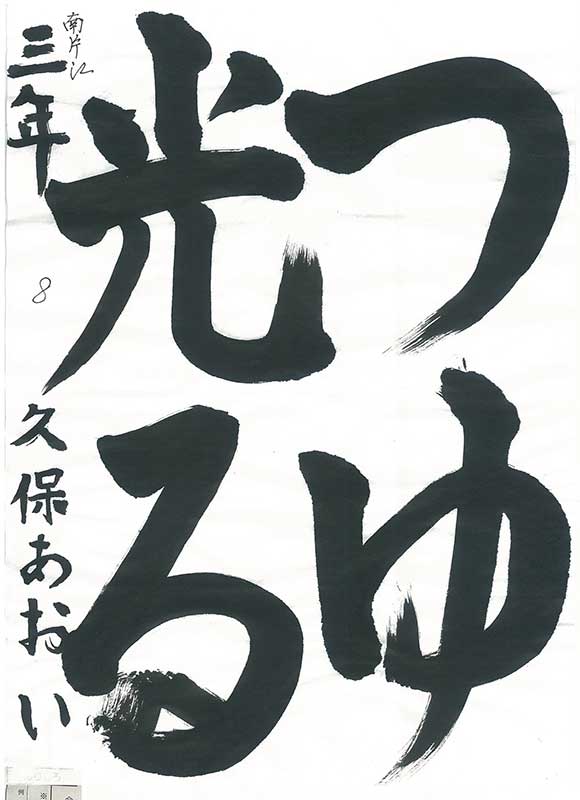 つゆ
光る
南片江
三年
8
久保あおい